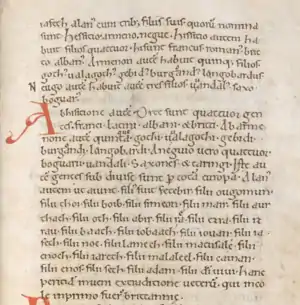 iafeth · alan' cum trib; filiis suis quorū nomina
sunt · hessitio · armeno · negue · hessitio autem ha
buit filios quattuor · hi sunt francus · roman' · brit
to · alban' · Armenon autē habuit quinq; filios
goth' · ualagoth' · gebid' · burgand' · langobardus
Neguo autē habuit tres filios · uuandal' · saxo
boguar'
Ab hisitione autē orte sunt quattuor gen
tes · franci · latini · albani · & britti · Ab arme
none autē quinq; · gothi · ualagothi · gebidi ·
burgandi · langobardi · A neguio uero quattuor
boguarii · uandali · Saxones & taringi · Iste au
tē gentes sub diuise sunt p totā europā · Alan'
autem ut aiunt filius fuit fetebir · filii ougomun ·
filii thoi · filii boib · filii simeon · filii mair · filii aur
thach · filii oth · filii abir · filii ra · filii ezra · filii iz
rau · filii baath · filii iobaath · filii iouan · filii ia
feth · filii noe · filii lamech · filii matusale · filii
enoch · filii iareth · filii malaleel · filii cainan ·
filii enos · filii seth · filii adam · filii di uiui · hanc
peritiā inueni ex traditione ueterū · qui incole
in primo fuer' brittannie ·